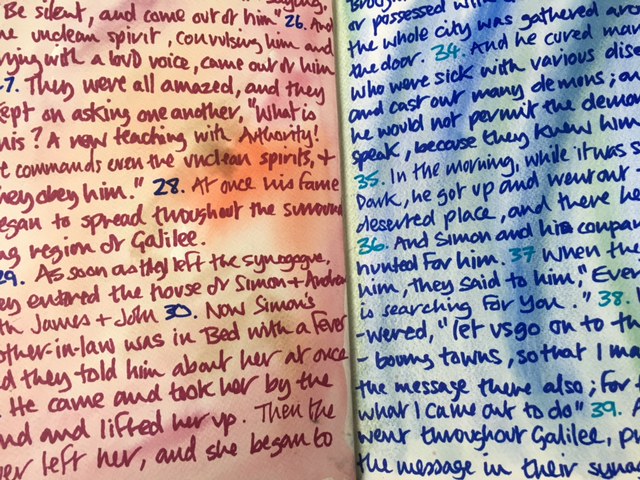 Be silent, and come out of him." 26. And
e unclean spirit, convulsing him and
rying with a loud voice, came out of him
7. They were all amazed, and they
ept on asking one another, "What is
his? A new teaching with Authority!
e commands even the unclean spirits, +
hey obey him." 28. At once his fame
egan to spread throughout the surroun
ng region of Galilee.
29. As soon as they left the synagogue,
ey entered the house of Simon + Andre
ith James + John 30. Now Simon's
other-in-law was in Bed with a fever
nd they told him about her at once
. He came and took her by the
nd and lifted her up. Then the
er left her, and she began to
or possessed
the whole city was gathered aro
the door. 34. And he cured
who were sick with various dis
and cast out many demons; an
he would not permit the demo
speak, because they knew him
35. In the morning, while it was s
Dark, he got up and went out
deserted place, and there he
36. And Simon and his compa
hunted for him. 37 When the
him, they said to him, "Eve
is searching for you." 38.
-wered, "let us go on to th
towns, so that I ma
the message there also; for t
what I came out to do" 39.
went throughout Galilee, p
the message in their syn